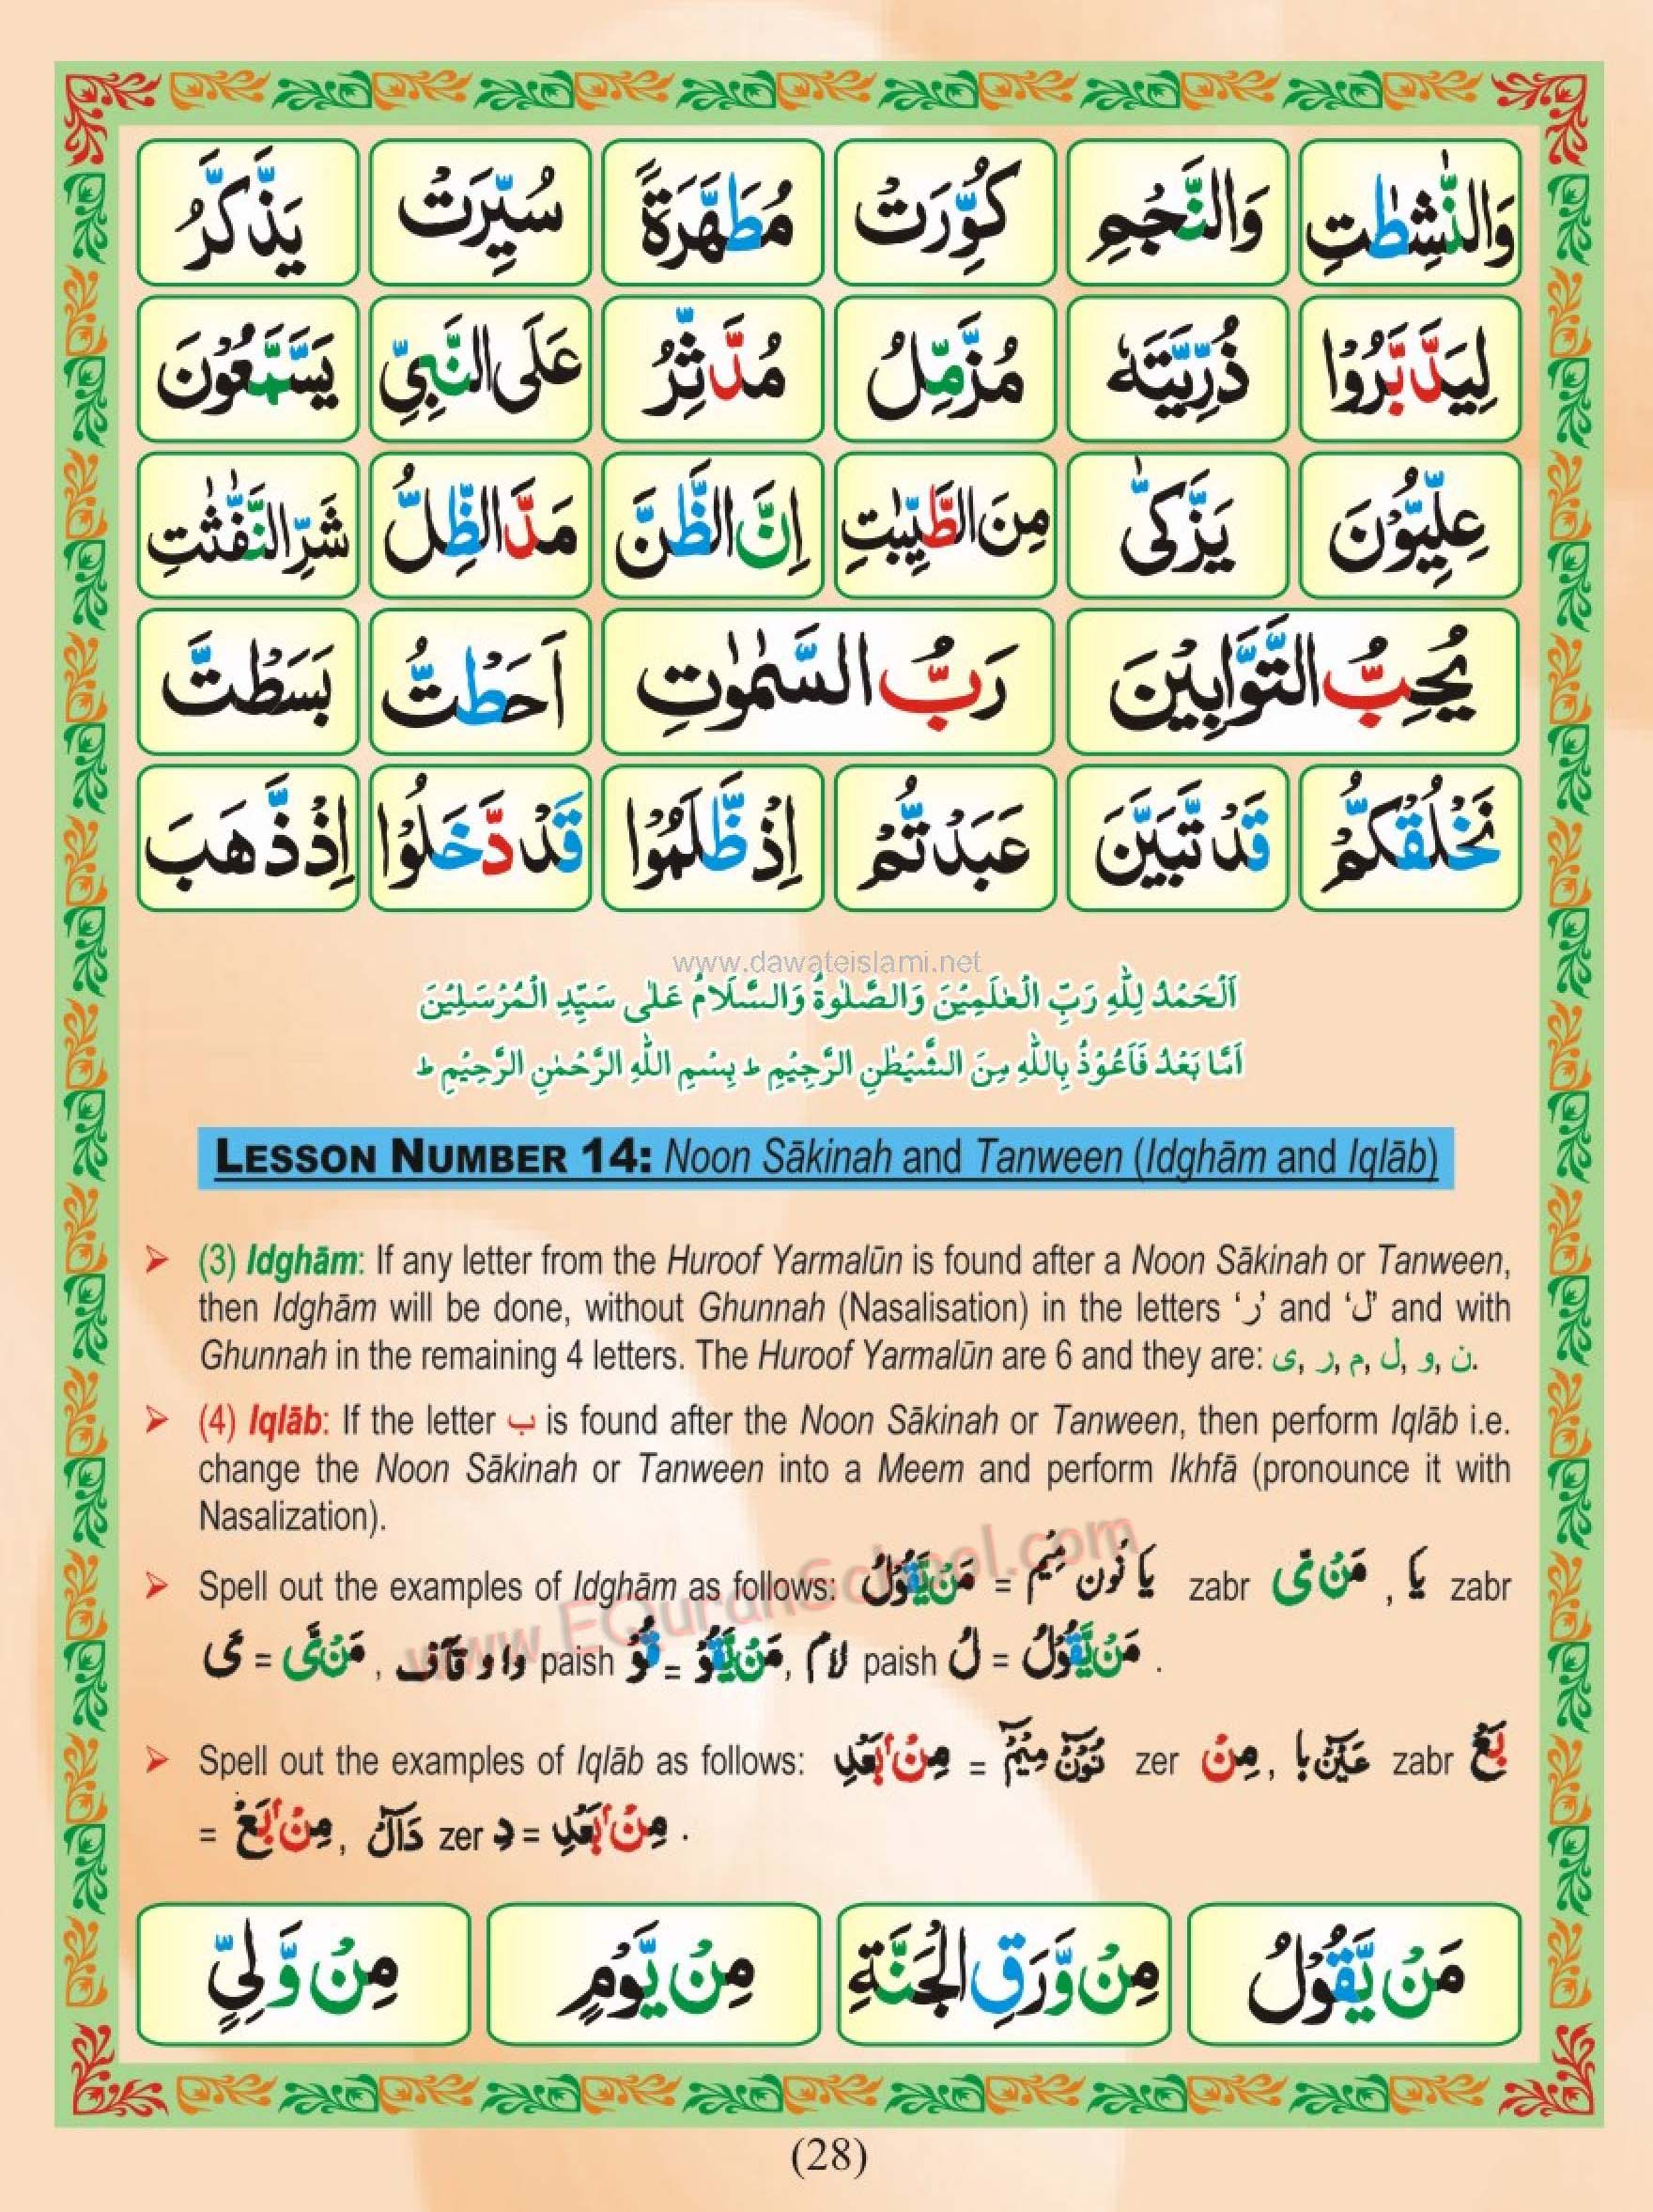 وَالنّٰشِطٰتِ وَالنَّجْمِ كُوِّرَتْ مُطَهَّرَةً سُيِّرَتْ يَذَّكَّرُ
لِيَدَّبَّرُوْا ذُرِّيَّتَهٗ مُزَّمِّلُ مُدَّثِّرُ عَلَى النَّبِيِّ يَسَّمَّعُوْنَ
عِلِّيُّوْنَ يَزَّكّٰى مِنَ الطَّيِّبٰتِ اِنَّ الظَّنَّ مَدَّ الظِّلَّ شَرِّ النَّفّٰثٰتِ
يُحِبُّ التَّوَّابِيْنَ رَبُّ السَّمٰوٰتِ اَحَطْتُّ بَسَطْتَّ
نَخْلُقْكُّمْ قَدْ تَّبَيَّنَ عَبَدْتُّمْ اِذْ ظَّلَمُوْا قَدْ دَّخَلُوْا اِذْ ذَّهَبَ
www.dawateislami.net
اَلْحَمْدُ لِلّٰهِ رَبِّ الْعٰلَمِيْنَ وَالصَّلٰوةُ وَالسَّلَامُ عَلٰى سَيِّدِ الْمُرْسَلِيْنَ
اَمَّا بَعْدُ فَاَعُوْذُ بِاللّٰهِ مِنَ الشَّيْطٰنِ الرَّجِيْمِ ط بِسْمِ اللّٰهِ الرَّحْمٰنِ الرَّحِيْمِ ط
LESSON NUMBER 14: Noon Sākinah and Tanween (Idghām and Iqlāb)
➢ (3) Idghām: If any letter from the Huroof Yarmalūn is found after a Noon Sākinah or Tanween,
then Idghām will be done, without Ghunnah (Nasalisation) in the letters ‘ر’ and ‘ل’ and with
Ghunnah in the remaining 4 letters. The Huroof Yarmalūn are 6 and they are: ى, ر, م, ل, و, ن.
➢ (4) Iqlāb: If the letter ب is found after the Noon Sākinah or Tanween, then perform Iqlāb i.e.
change the Noon Sākinah or Tanween into a Meem and perform Ikhfā (pronounce it with
Nasalization).
www.EQuranSchool.com
➢ Spell out the examples of Idghām as follows: مَنْ يَّقُوْلُ = يَا نُون مِيْم zabr مَنْ يَّ , يَا zabr
يَ = مَنْ يَّ , واو قَاف paish قُوْ = مَنْ يَّقُوْ , لَام paish لُ = مَنْ يَّقُوْلُ .
➢ Spell out the examples of Iqlāb as follows: مِنْۢ بَعْدِ = نُوْنْ مِيْمْ zer مِنْ , عَيْنْ بَا zabr بَعْ
= مِنْۢ بَعْ , دَالْ zer دِ = مِنْۢ بَعْدِ .
مَنْ يَّقُوْلُ مِنْ وَّرَقِ الْجَنَّةِ مِنْ يَّوْمٍ مِنْ وَّلِيٍّ
(28)